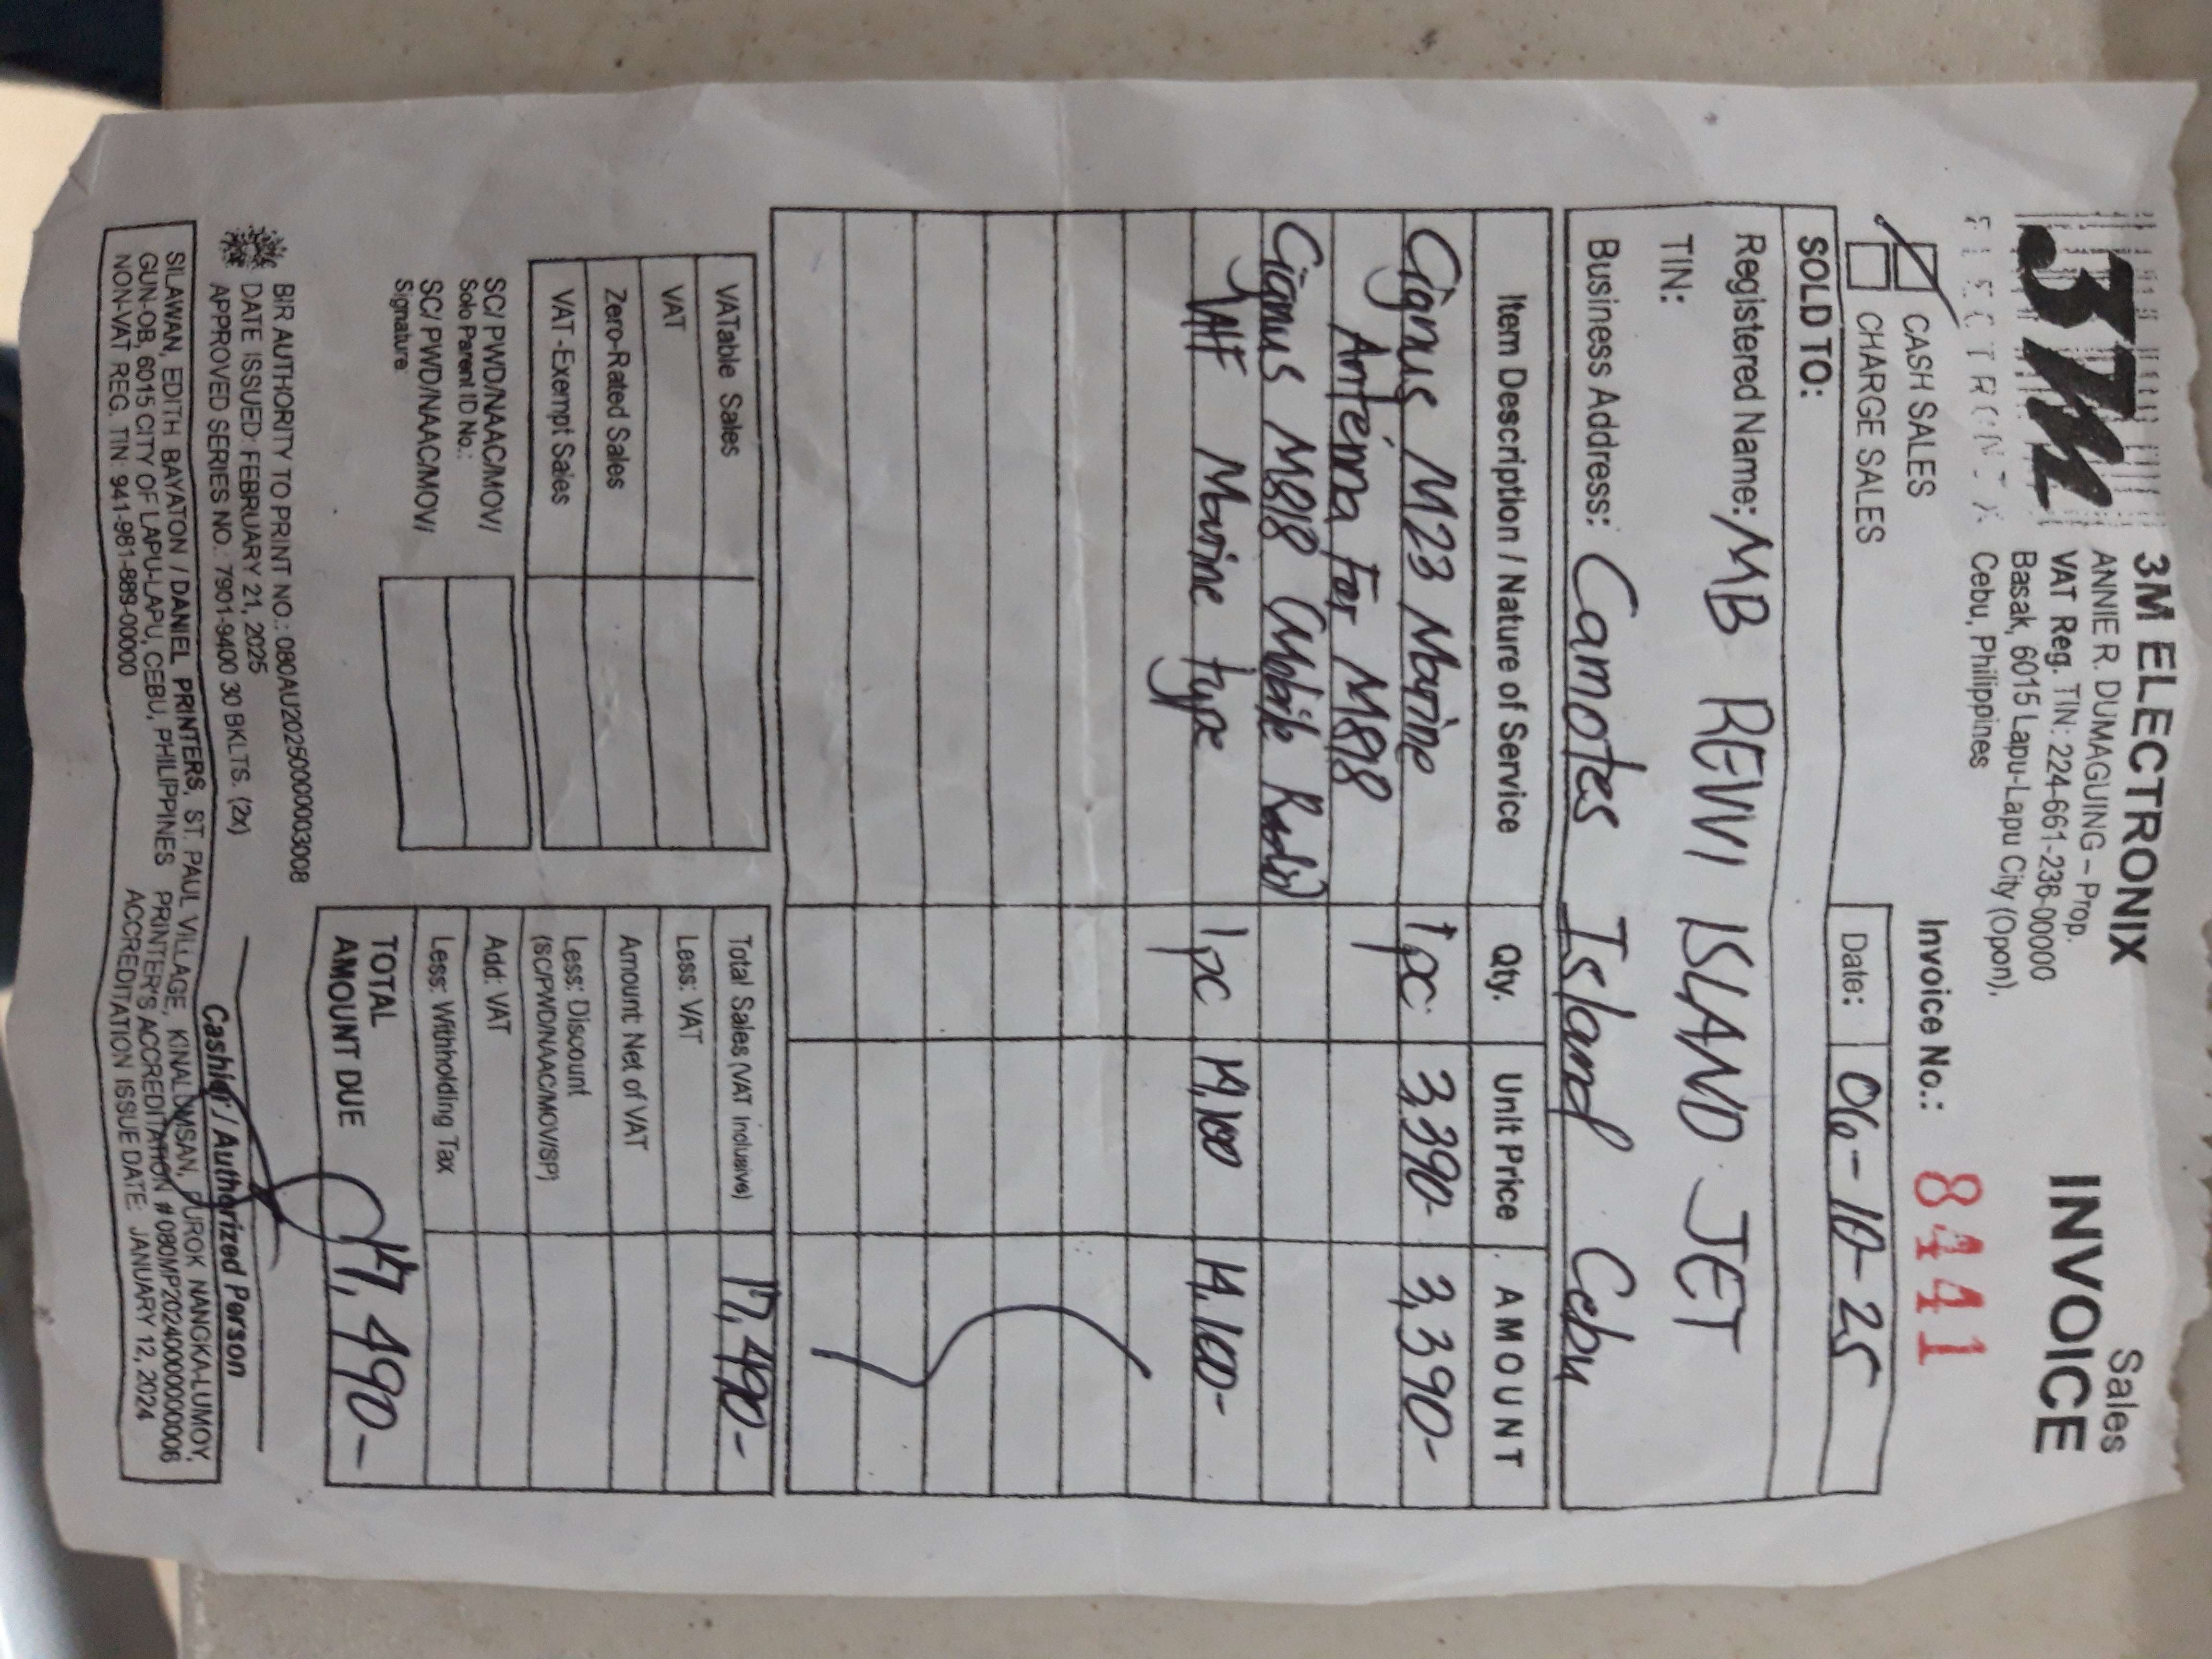 3M
ELECTRONIX
3M ELECTRONIX
ANNIE R. DUMAGUING – Prop.
VAT Reg. TIN: 224-661-236-00000
Basak, 6015 Lapu-Lapu City (Opon),
Cebu, Philippines
Sales
INVOICE
CASH SALES
CHARGE SALES
Invoice No.: 8441
Date: 06-10-25
SOLD TO:
Registered Name: MB REVVI ISLAND JET
TIN:
Business Address: Camotes Island Cebu
Item Description / Nature of Service Qty. Unit Price AMOUNT
Cignus M23 Marine 1 pc 3,390- 3,390-
Antenna For M898
Cignus M898 Mobile Radio
VHF Marine type 1 pc 14,100 14,100-
VATable Sales
VAT
Zero-Rated Sales
VAT-Exempt Sales
SC/ PWD/NAAC/MOV/
Solo Parent ID No.:
SC/ PWD/NAAC/MOV/
Signature:
Total Sales (VAT Inclusive) 17,490-
Less: VAT
Amount: Net of VAT
Less: Discount
(SC/PWD/NAAC/MOV/SP)
Add: VAT
Less: Withholding Tax
TOTAL
AMOUNT DUE 17,490-
BIR AUTHORITY TO PRINT NO.: 080AU20250000003008
DATE ISSUED: FEBRUARY 21, 2025
APPROVED SERIES NO.: 7901-9400 30 BKLTS. (2x)
Cashier / Authorized Person
SILAWAN, EDITH BAYATON / DANIEL PRINTERS, ST. PAUL VILLAGE, KINALUMSAN, PUROK NANGKA-LUMOY,
GUN-OB, 6015 CITY OF LAPU-LAPU, CEBU, PHILIPPINES PRINTER'S ACCREDITATION # 080MP20240000000006
NON-VAT REG. TIN: 941-981-889-00000 ACCREDITATION ISSUE DATE: JANUARY 12, 2024